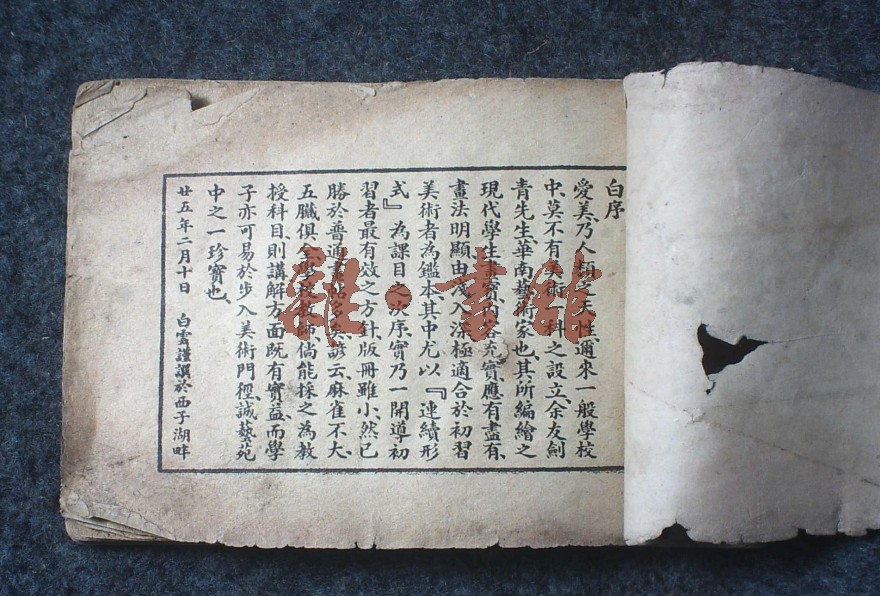 白序
愛美、乃人類之天性邇來一般學校
中、莫不有美術一科之設立、余友劍
青先生、華南藝術家也、其所編繪之
現代學生畫寶、內容充實、應有盡有、
畫法明顯、由淺入深、極適合於初習
美術者為鑑本、其中尤以『連續形
式』為課目之次序、實乃一開導初
習者最有效之方針、版冊雖小、然已
勝於普通畫帖多矣、諺云、麻雀不大、
五臟俱全、學校教師、倘能採之為教
授科目、則講解方面既有實益、而學
子亦可易於步入美術門徑、誠藝苑
中之一珍寶也、
廿五年二月十日 白雲謹譔於西子湖畔
雜·書館